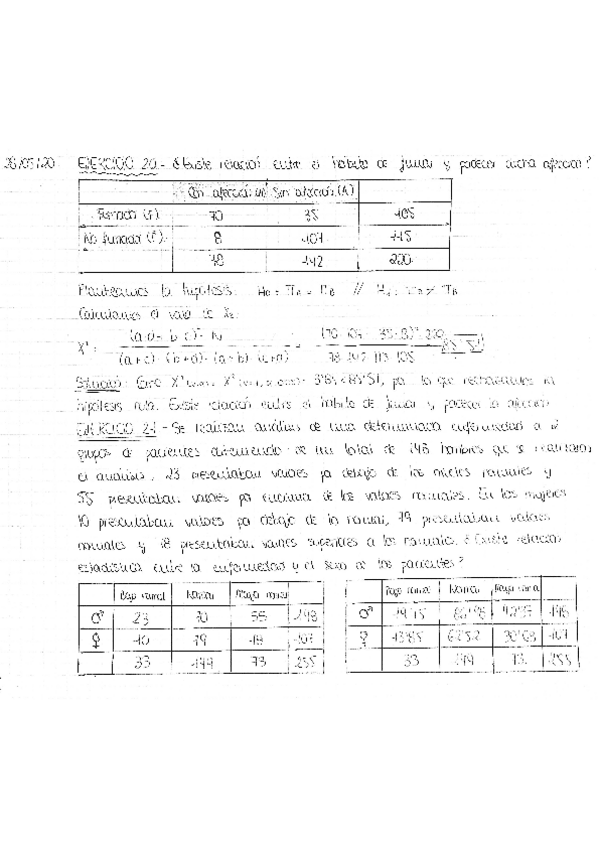 28/05/20 EJERCICIO 20.- ¿Existe relación entre el hábito de fumar y padecer cierta afección?
Con afección Sin afección (A)
Fumador (F) 70 35 105
No fumador (F) 8 107 115
78 142 220
Planteamos la hipótesis: H₀ = π_A = π_B // H₁ = π_A ≠ π_B
Calculamos el valor de
X² = (a·d - b·c)²· N / (a+c)·(b+d)·(a+b)·(c+d) = (70·107 - 35·8)²·220 / 78·142·115·105 85'51
Solución: Como X² X² 3'84 < 85'51, por lo que rechazamos la
hipótesis nula. Existe relación entre el hábito de fumar y padecer la afección
EJERCICIO 21- Se realizan análisis de una determinada enfermedad a 2
grupos de pacientes obteniendo de un total de 148 hombres que se realizaron
el análisis, 23 presentaban valores por debajo de los niveles normales y
55 presentaban valores por encima de los valores normales. En las mujeres
10 presentaban valores por debajo de lo normal, 79 presentaban valores
normales y 18 presentaban valores superiores a los normales. ¿Existe relación
estadística entre la enfermedad y el sexo de los pacientes?
Bajo normal Normal normal
♂ 23 70 55 148
♀ 10 79 18 107
33 149 73 255
Bajo normal Normal normal
♂ 19'15 86'48 42'37 148
♀ 13'85 62'52 30'63 107
33 149 73 255